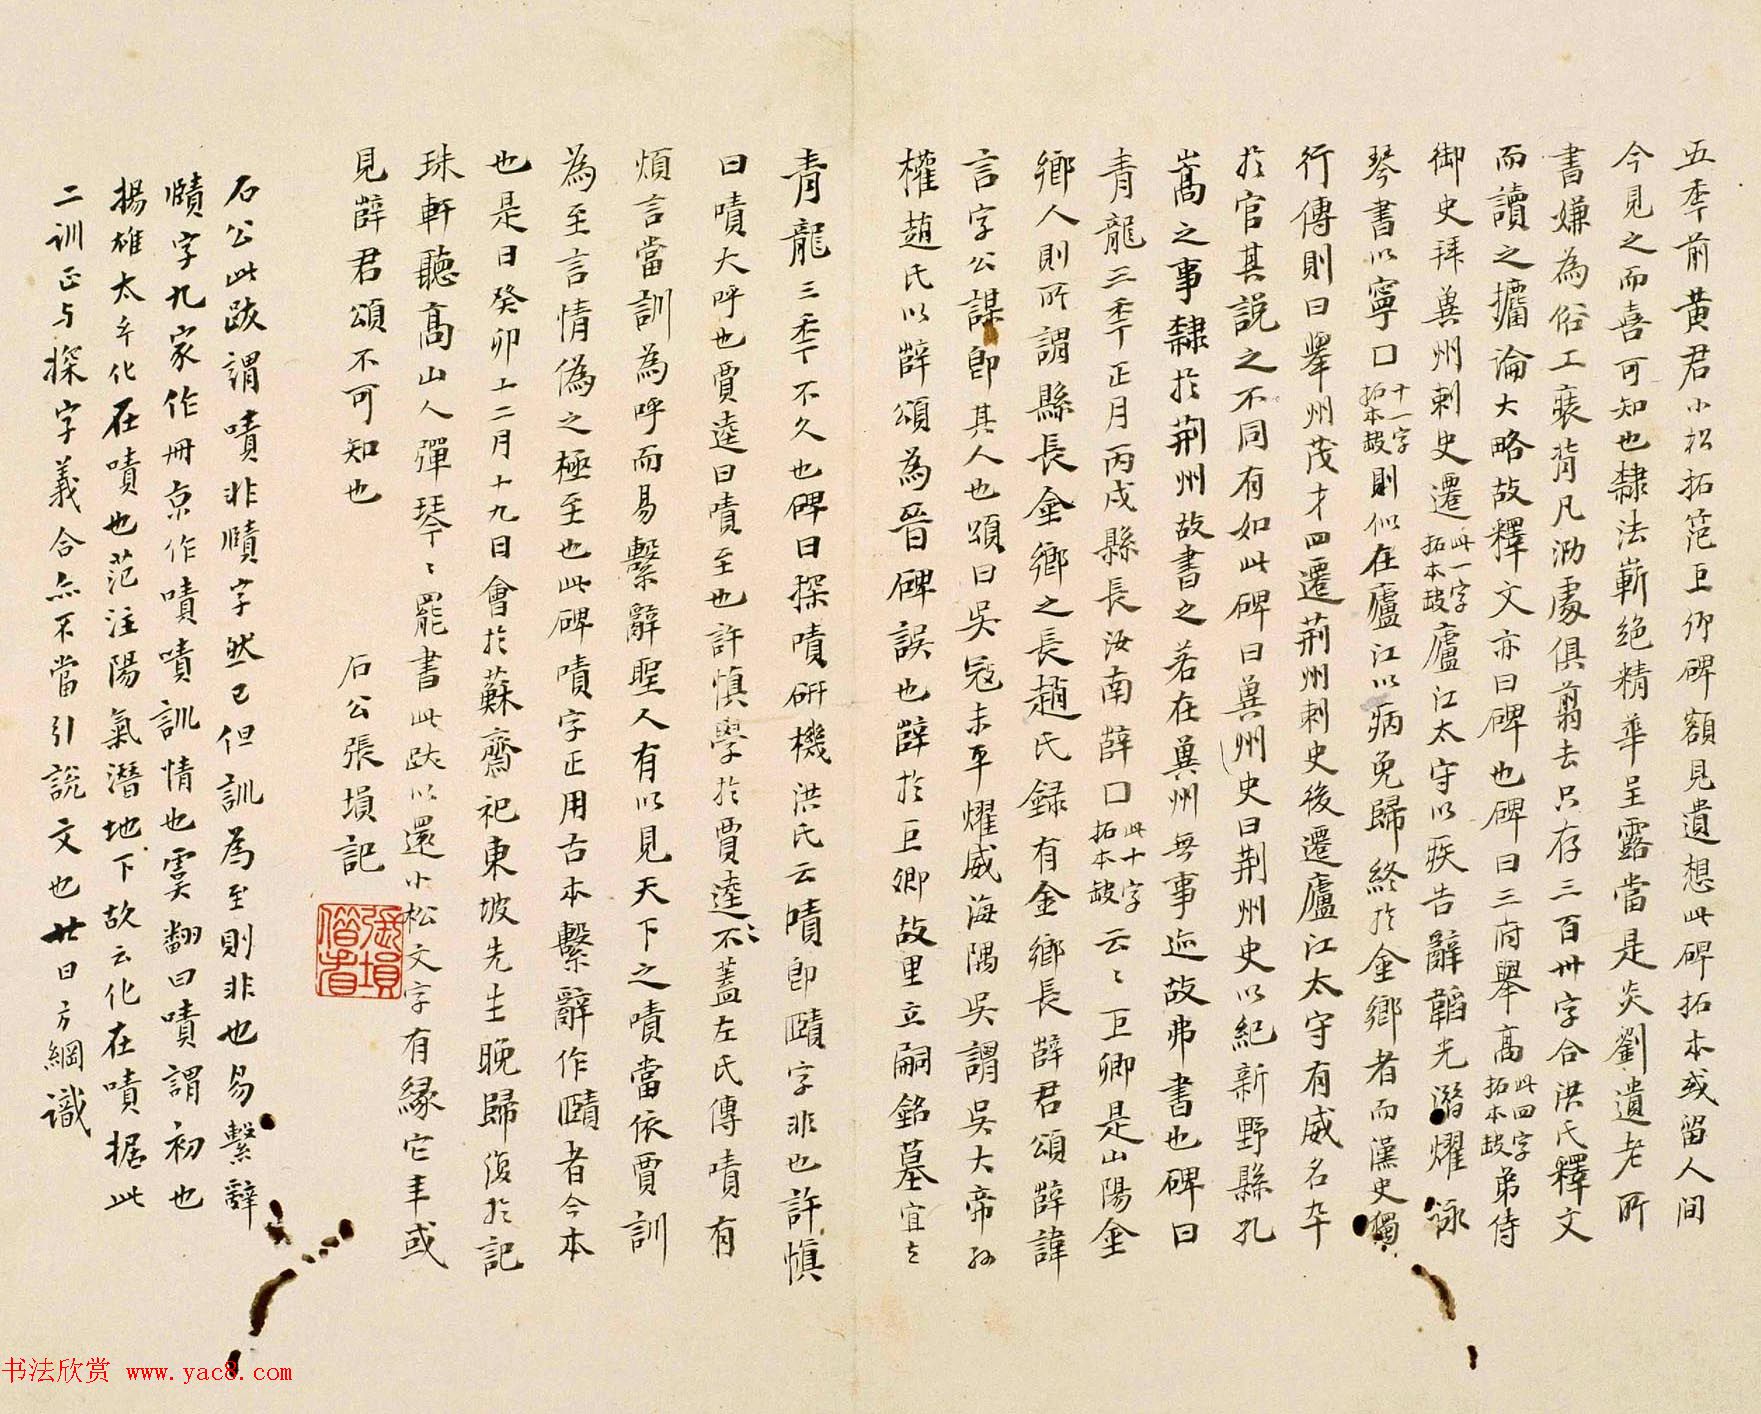 五年前黃君小松拓范巨卿碑額見遺想此碑拓本或留人間
今見之而喜可知也隸法嶄絕精華呈露當是炎劉遺老所
書嫌為俗工裱背凡泐處俱翦去只存三百卅字合洪氏釋文
而讀之攟論大略故釋文亦曰碑也碑曰三府舉高此四字拓本缺弟侍
御史拜冀州刺史遷此一字拓本缺廬江太守以疾告辭韜光潛燿詠
琴書以寧口十一字拓本缺則似在廬江以病免歸終於金鄉者而漢史獨
行傳則曰舉州茂才四遷荊州刺史後遷廬江太守有威名卒
於官其說之不同有如此碑曰冀州史曰荊州史以紀新野縣孔
嵩之事隸於荊州故書之若在冀州無事迹故弗書也碑曰
青龍三年正月丙戌縣長汝南薛口此十字拓本缺云〻巨卿是山陽金
鄉人則所謂縣長金鄉之長趙氏錄有金鄉長薛君頌薛諱
言字公謀卽其人也頌曰吳寇未平燿威海隅吳謂吳大帝孫
權趙氏以薛頌為晉碑誤也薛於巨卿故里立嗣銘墓宜在
青龍三年不久也碑曰探嘖研機洪氏云嘖卽賾字非也許慎
曰嘖大呼也賈逵曰嘖至也許慎學於賈逵〻不蓋左氏傳嘖有
煩言當訓為呼而易繫辭聖人有以見天下之嘖當依賈訓
為至言情偽之極至也此碑嘖字正用古本繫辭作賾者今本
也是日癸卯十二月十九日會於蘇齋祀東坡先生晚歸復於記
珠軒聽高山人彈琴〻罷書此跋以還小松文字有緣它年或
見薛君頌不可知也
石公張塤記
張塤借看
石公此跋謂嘖非賾字然已但訓為至則非也易繫辭
賾字九家作冊京作嘖嘖訓情也虞翻曰嘖謂初也
揚雄太玄化在嘖也范注陽氣潛地下故云化在嘖據此
二训正与探字義合亦不當引說文也廿日方綱識
书法欣赏 www.yac8.com